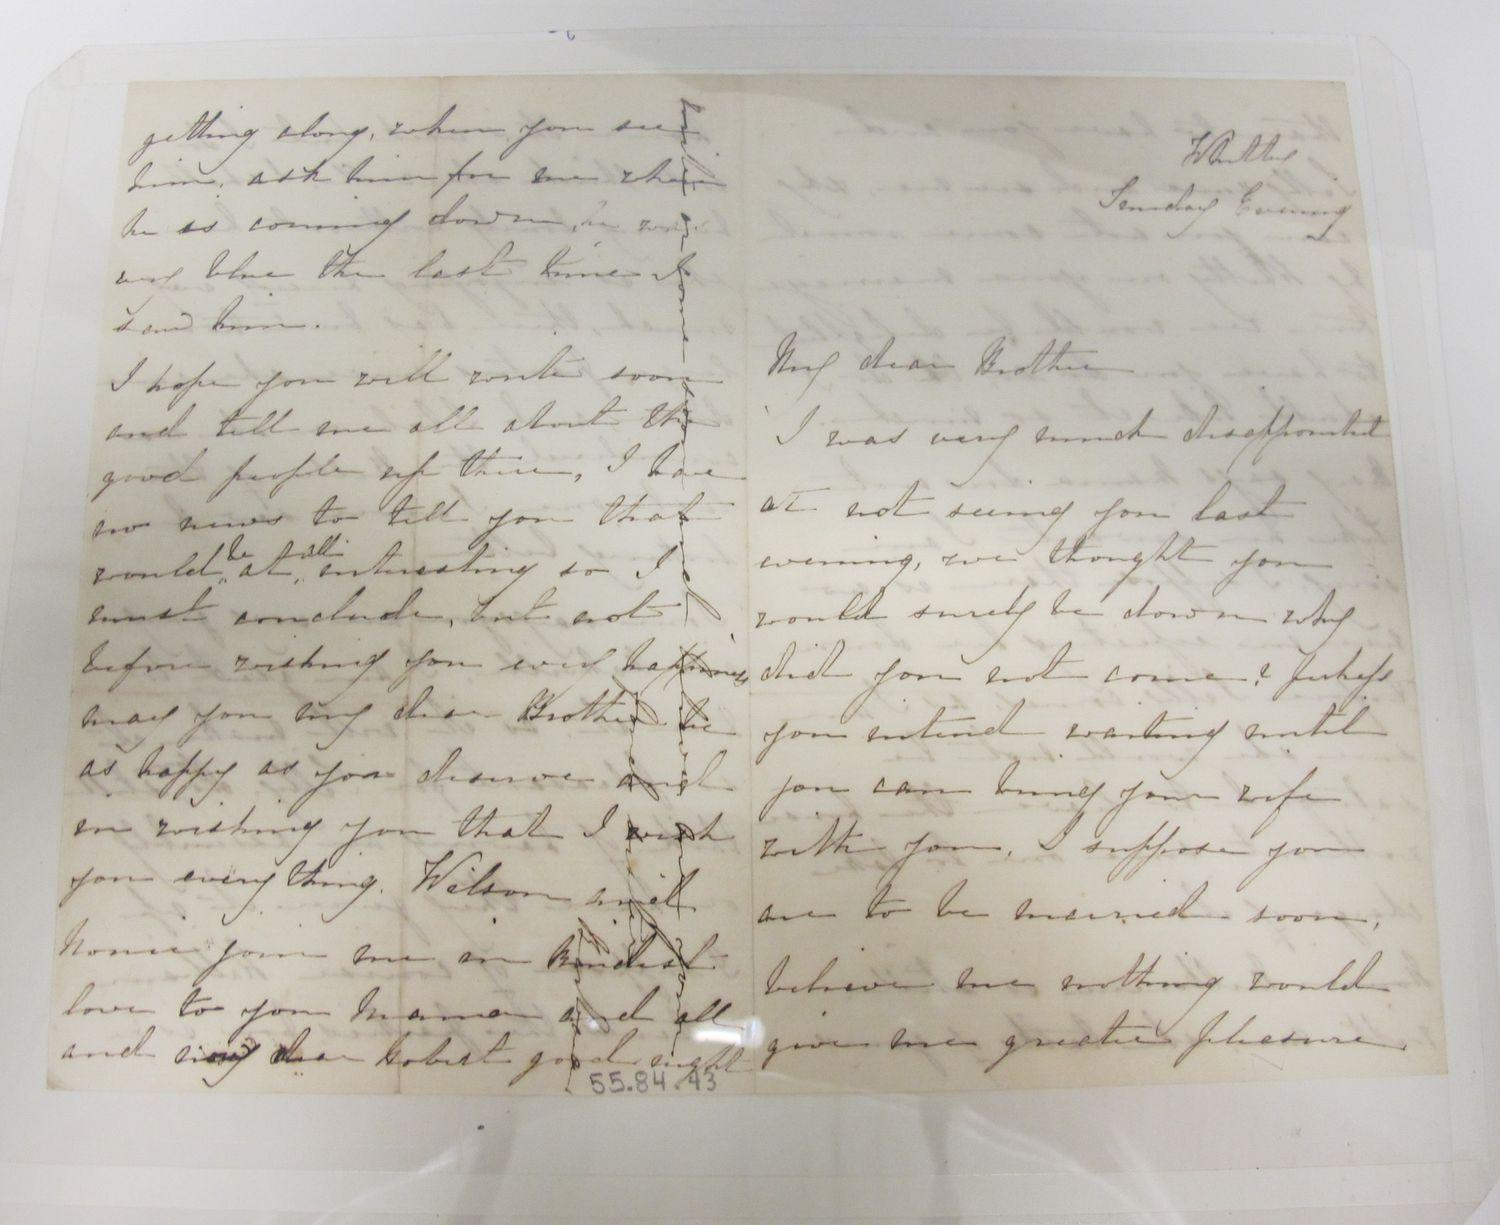 Whitby
Sunday Evening
My dear Brother
I was very much disappointed
at not seeing you last
evening, we thought you
would surely be down why
did you not come? perhaps
you intend waiting until
you can bring your wife
with you, I suppose you
are to be married soon,
believe me nothing would
give me greater pleasure
getting along, when you see
him, ask him for me when
he is coming down, he was
very blue the last time I
saw him.
I hope you will write soon
and tell me all about the
good people up there, I have
no news to tell you that
would be at all interesting so I
must conclude, but not
before wishing you every happiness
may you my dear Brother be
as happy as you deserve and
in wishing you that I wish
you everything. Wilson and
join me in kindest
love to you Mama and all
and now dear Robert good night
55.84.43